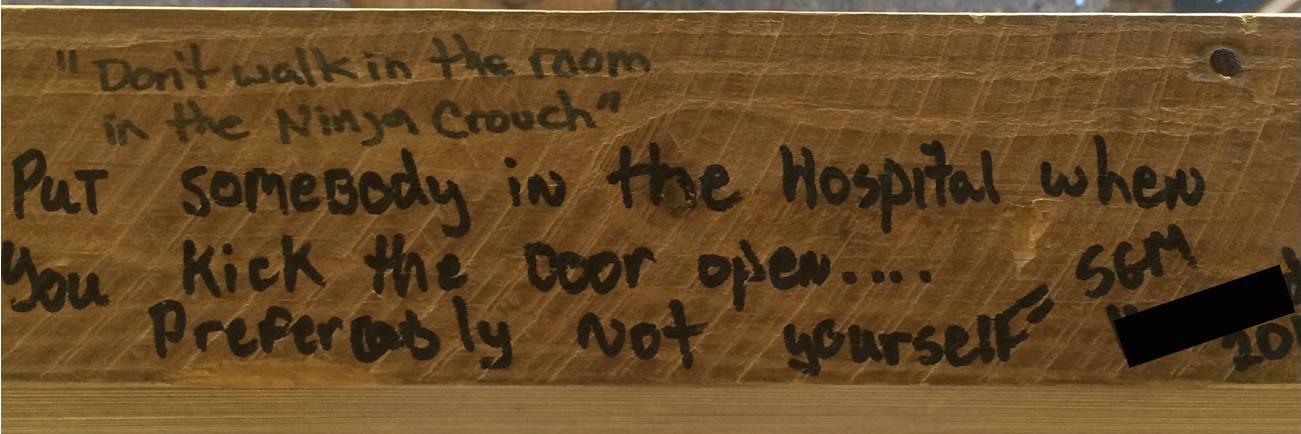 "Don't walk in the room
in the Ninja Crouch"
Put somebody in the Hospital when
you kick the Door open.... SGM
Preferably Not yourself"